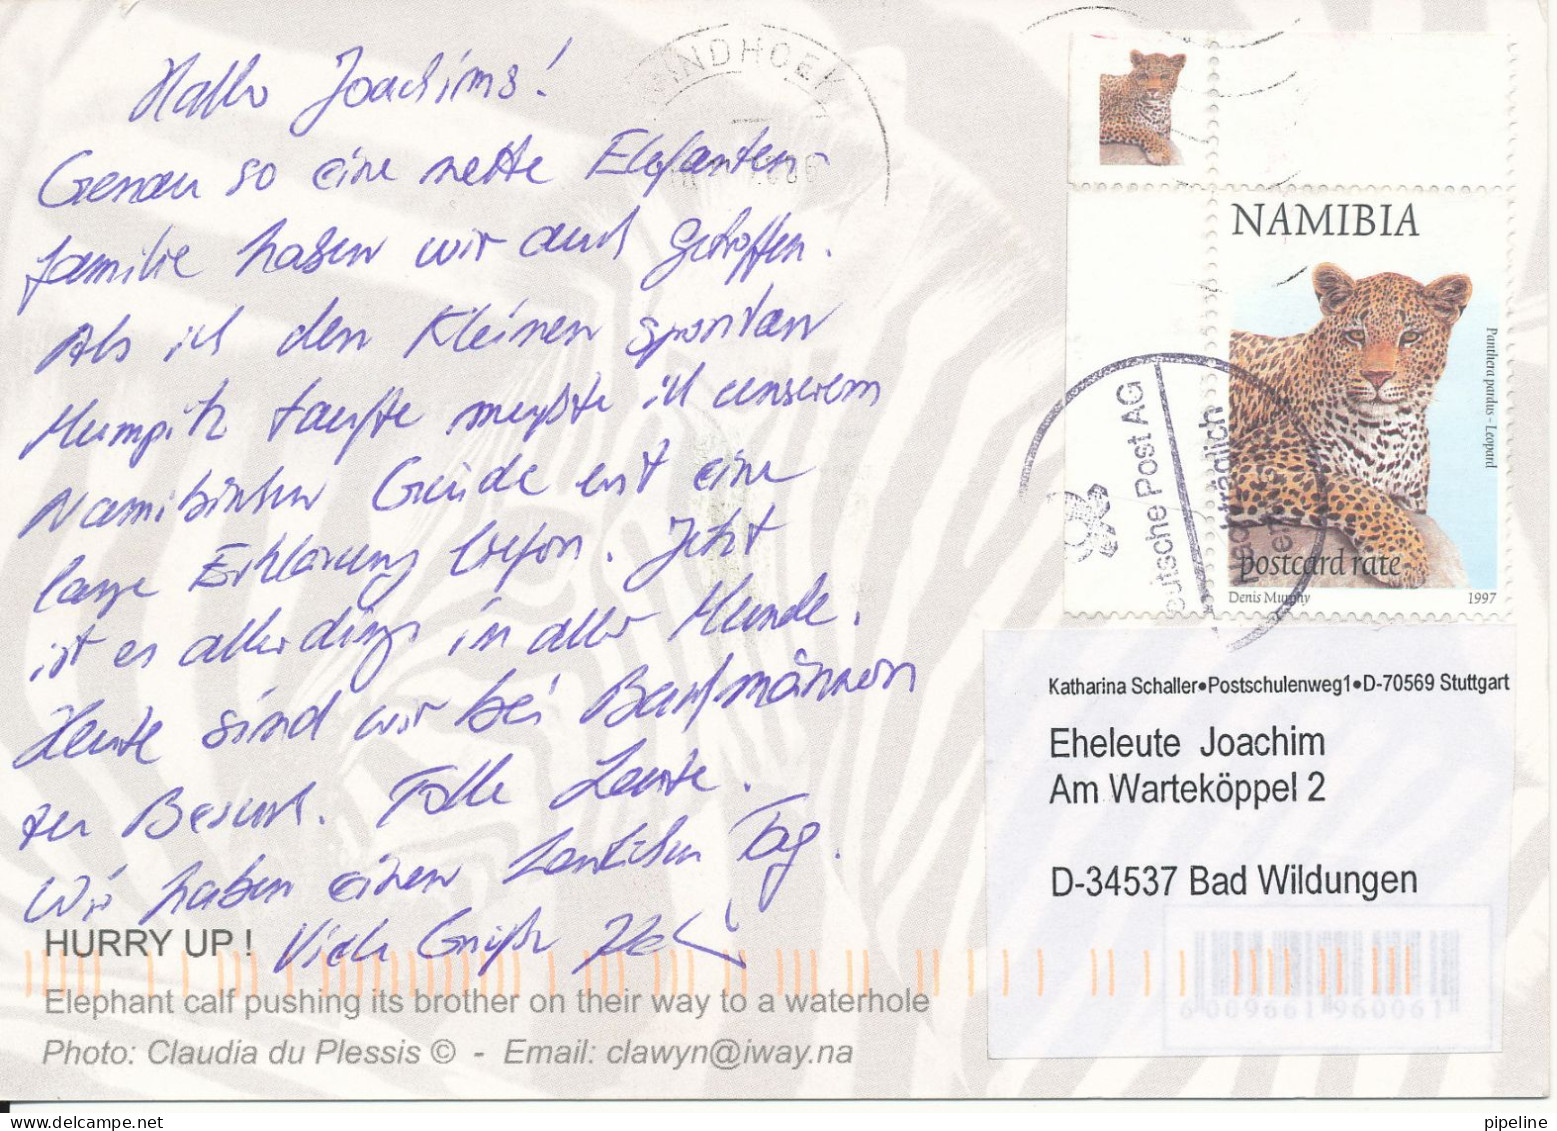 Hallo Joachims!
Genau so eine nette Elefanten-
familie haben wir auch getroffen.
Als ich den Kleinen spontan
Mumpitz taufte mußte ich unserem
Namibischen Guide erst eine
lange Erklärung liefern. Jetzt
ist es allerdings in aller Munde.
Heute sind wir bei Bachmännern
zu Besuch. Tolle Leute.
Wir haben einen herrlichen Tag.
Viele Grüße
HURRY UP !
Elephant calf pushing its brother on their way to a waterhole
Photo: Claudia du Plessis © - Email: clawyn@iway.na
WINDHOEK
NAMIBIA
Panthera pardus - Leopard
postcard rate
Denis Murphy 1997
Deutsche Post AG
Katharina Schaller•Postschulenweg1•D-70569 Stuttgart
Eheleute Joachim
Am Warteköppel 2
D-34537 Bad Wildungen
6 009661 960061
pipeline